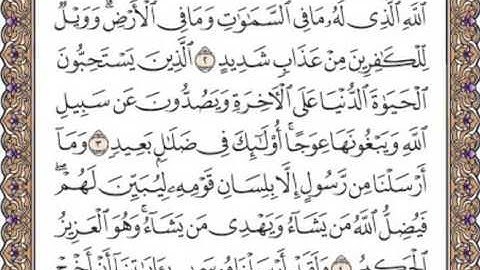 ٱللَّهِ ٱلَّذِى لَهُۥ مَا فِى ٱلسَّمَٰوَٰتِ وَمَا فِى ٱلْأَرْضِ ۗ وَوَيْلٌ
لِّلْكَٰفِرِينَ مِنْ عَذَابٍ شَدِيدٍ ٢ ٱلَّذِينَ يَسْتَحِبُّونَ
ٱلْحَيَوٰةَ ٱلدُّنْيَا عَلَى ٱلْءَاخِرَةِ وَيَصُدُّونَ عَن سَبِيلِ
ٱللَّهِ وَيَبْغُونَهَا عِوَجًا ۚ أُو۟لَٰٓئِكَ فِى ضَلَٰلٍۭ بَعِيدٍ ٣ وَمَآ
أَرْسَلْنَا مِن رَّسُولٍ إِلَّا بِلِسَانِ قَوْمِهِۦ لِيُبَيِّنَ لَهُمْ ۖ
فَيُضِلُّ ٱللَّهُ مَن يَشَآءُ وَيَهْدِى مَن يَشَآءُ ۚ وَهُوَ ٱلْعَزِيزُ